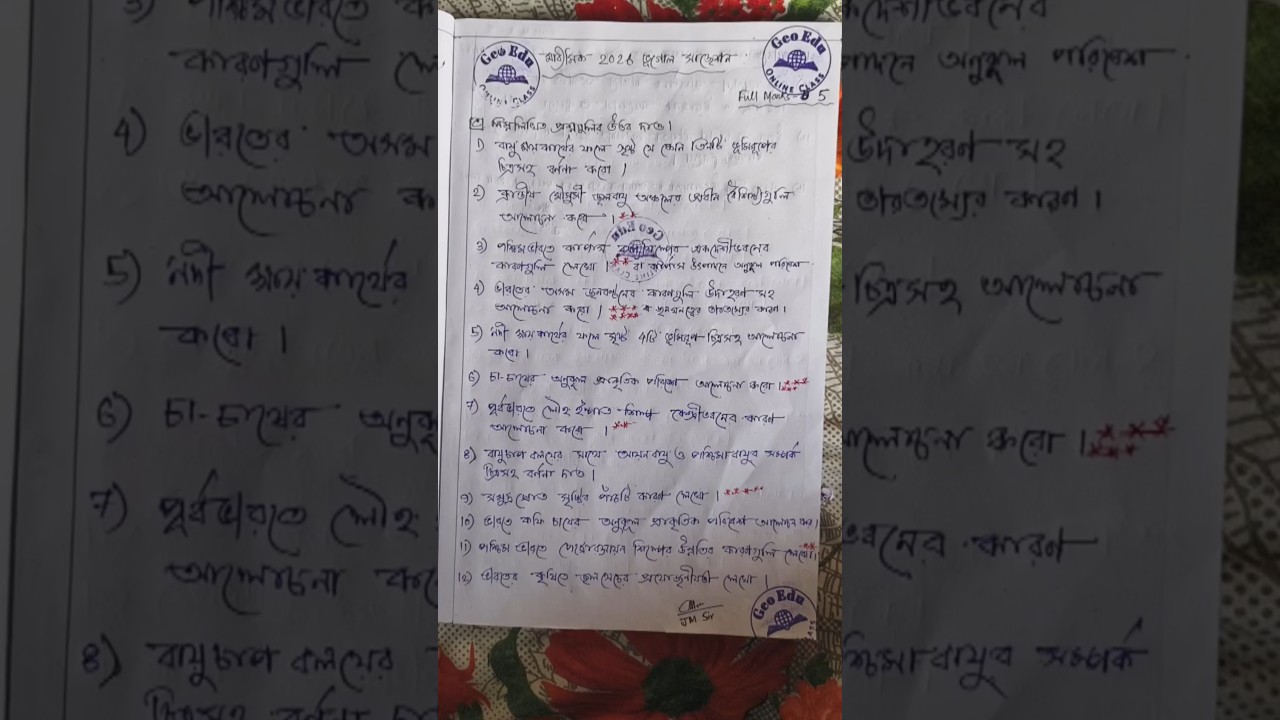 Geo Edu
ONLINE CLASS
মাধ্যমিক 2026 ভূগোল সাজেশান
Geo Edu
ONLINE CLASS
Full Marks 5
নিম্নলিখিত প্রশ্নগুলির উত্তর দাও।
1) বায়ুর ক্ষয়কার্যের ফলে সৃষ্ট যে কোন তিনটি ভূমিরূপের
চিত্রসহ বর্ণনা করো।
2) ক্রান্তীয় মৌসুমী জলবায়ু অঞ্চলের বৈশিষ্ট্যগুলি
আলোচনা করো।**
3) পশ্চিমভারতে কার্পাস বয়নশিল্পের একদেশীভবনের
কারণগুলি লেখো।** বা কার্পাস উৎপাদনে অনুকূল পরিবেশ
4) ভারতের অসম জনবন্টনের কারণগুলি উদাহরণ সহ
আলোচনা করো। বা জনঘনত্বের তারতম্যের কারণ।
5) নদী ক্ষয়কার্যের ফলে সৃষ্ট 4টি ভূমিরূপ চিত্রসহ আলোচনা
করো।
6) চা-চাষের অনুকূল প্রাকৃতিক পরিবেশ আলোচনা করো।
7) পূর্বভারতে লৌহ ইস্পাত শিল্প কেন্দ্রীভবনের কারণ
আলোচনা করো।**
8) বায়ুচাপ বলয়ের সাথে আয়ন বায়ু ও পশ্চিমা বায়ুর সম্পর্ক
চিত্রসহ বর্ণনা দাও।
9) সমুদ্রস্রোত সৃষ্টির পাঁচটি কারণ লেখো।
10) ভারতে কফি চাষের অনুকূল প্রাকৃতিক পরিবেশ আলোচনা কর।
11) পশ্চিম ভারতে পেট্রোরসায়ন শিল্পের উন্নতির কারণগুলি লেখো।**
12) ভারতের কৃষিতে জলসেচের প্রয়োজনীয়তা লেখো।
JM Sir
Geo Edu